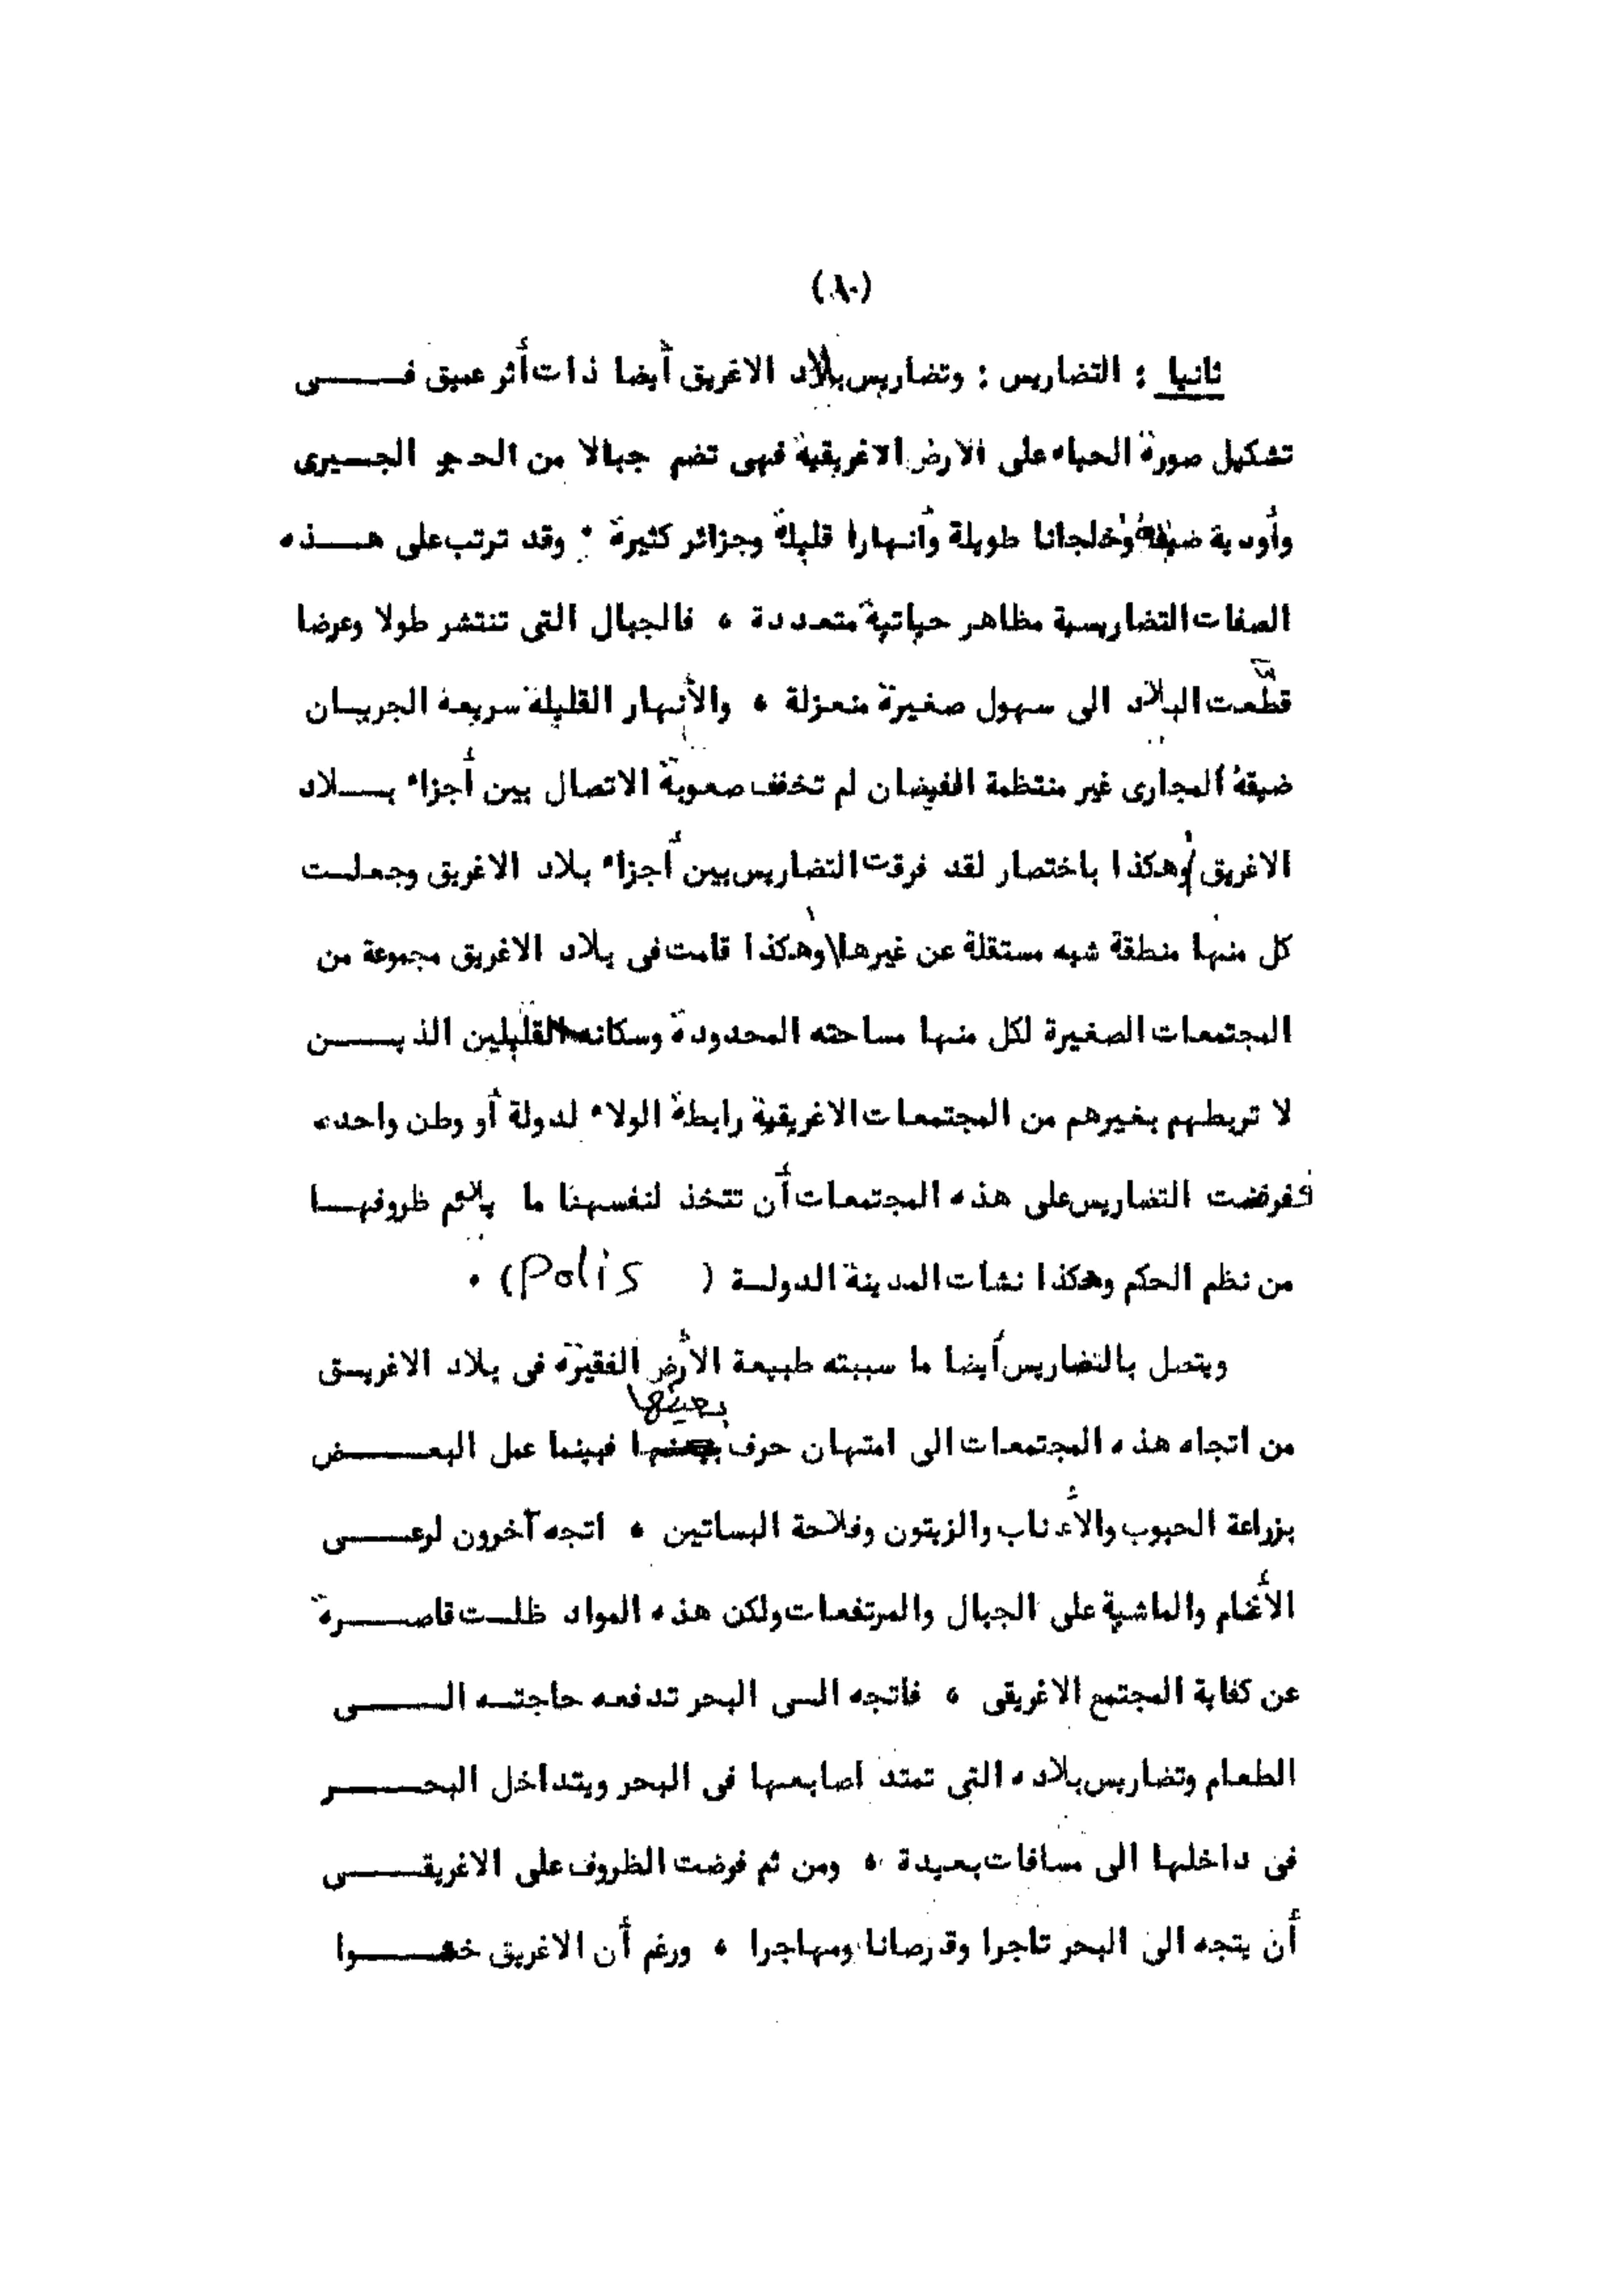 (٨٠)
ثانيا : التضاريس : وتضاريس بلاد الاغريق أيضا ذات أثر عميق فى
تشكيل صورة الحياه على الارض الاغريقية فهى تضم جبالا من الحجر الجيرى
وأودية ضيقة وخلجانا طويلة وأنهارا قليلة وجزائر كثيرة . وقد ترتب على هذه
الصفات التضاريسية مظاهر حياتية متعددة ، فالجبال التى تنتشر طولا وعرضا
قطّعت البلاد الى سهول صغيرة منعزلة ، والأنهار القليلة سريعة الجريان
ضيقة المجارى غير منتظمة الفيضان لم تخفف صعوبة الاتصال بين أجزاء بلاد
الاغريق وهكذا باختصار لقد فرقت التضاريس بين أجزاء بلاد الاغريق وجعلت
كل منها منطقة شبه مستقلة عن غيرها وهكذا قامت فى بلاد الاغريق مجموعة من
المجتمعات الصغيرة لكل منها مساحته المحدودة وسكانه القليلين الذين
لا تربطهم بغيرهم من المجتمعات الاغريقية رابطة الولاء لدولة أو وطن واحد،
ففرضت التضاريس على هذه المجتمعات أن تتخذ لنفسها ما يلائم ظروفها
من نظم الحكم وهكذا نشات المدينة الدولة ( Polis ) .
ويتصل بالتضاريس أيضا ما سببته طبيعة الأرض الفقيرة فى بلاد الاغريق
من اتجاه هذه المجتمعات الى امتهان حرف بعينها فبينما عمل البعض
بزراعة الحبوب والأعناب والزيتون وفلاحة البساتين ، اتجه آخرون لرعى
الأغنام والماشية على الجبال والمرتفعات ولكن هذه المواد ظلت قاصرة
عن كفاية المجتمع الاغريقى ، فاتجه الى البحر تدفعه حاجته الى
الطعام وتضاريس بلاده التى تمتد اصابعها فى البحر ويتداخل البحر
فى داخلها الى مسافات بعيدة ، ومن ثم فرضت الظروف على الاغريقى
أن يتجه الى البحر تاجرا وقرصانا ومهاجرا ، ورغم أن الاغريق